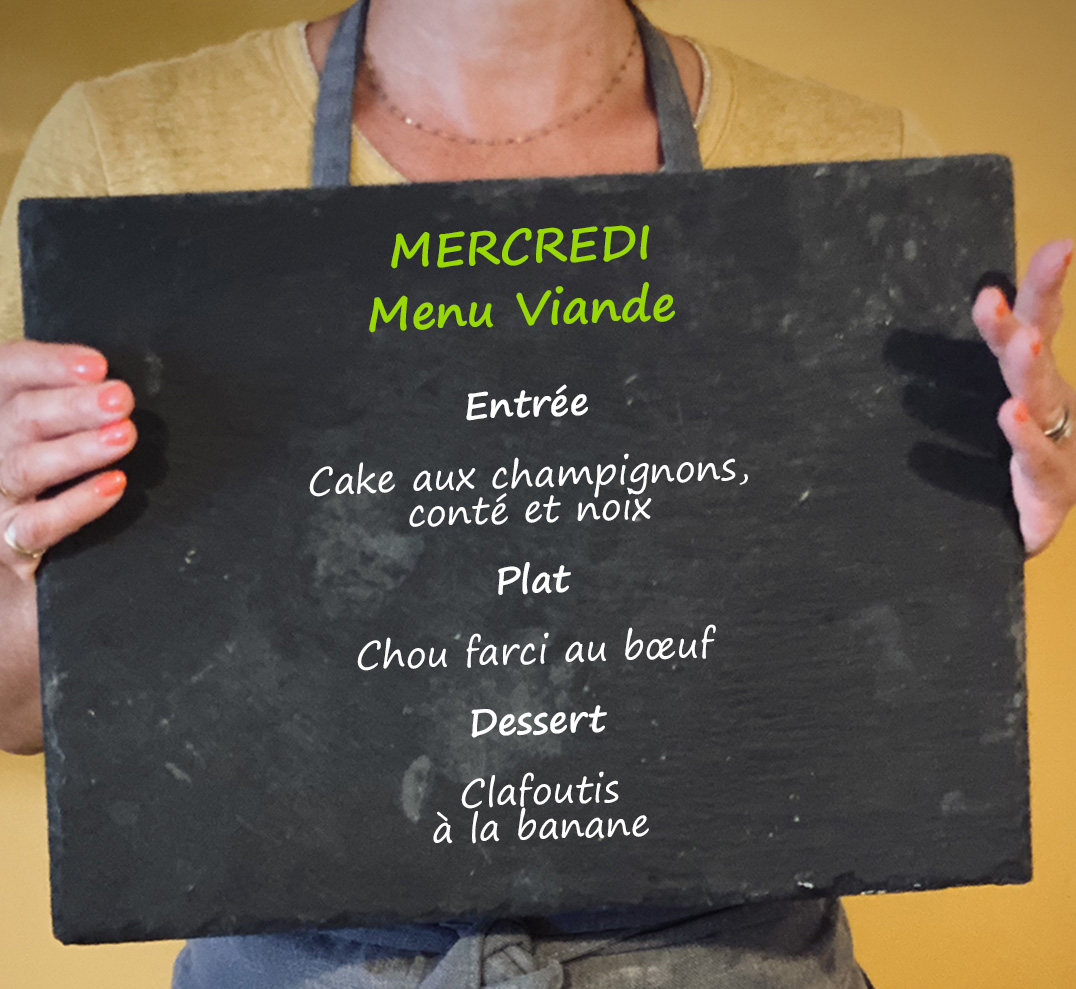 MERCREDI
Menu Viande
Entrée
Cake aux champignons,
conté et noix
Plat
Chou farci au bœuf
Dessert
Clafoutis
à la banane